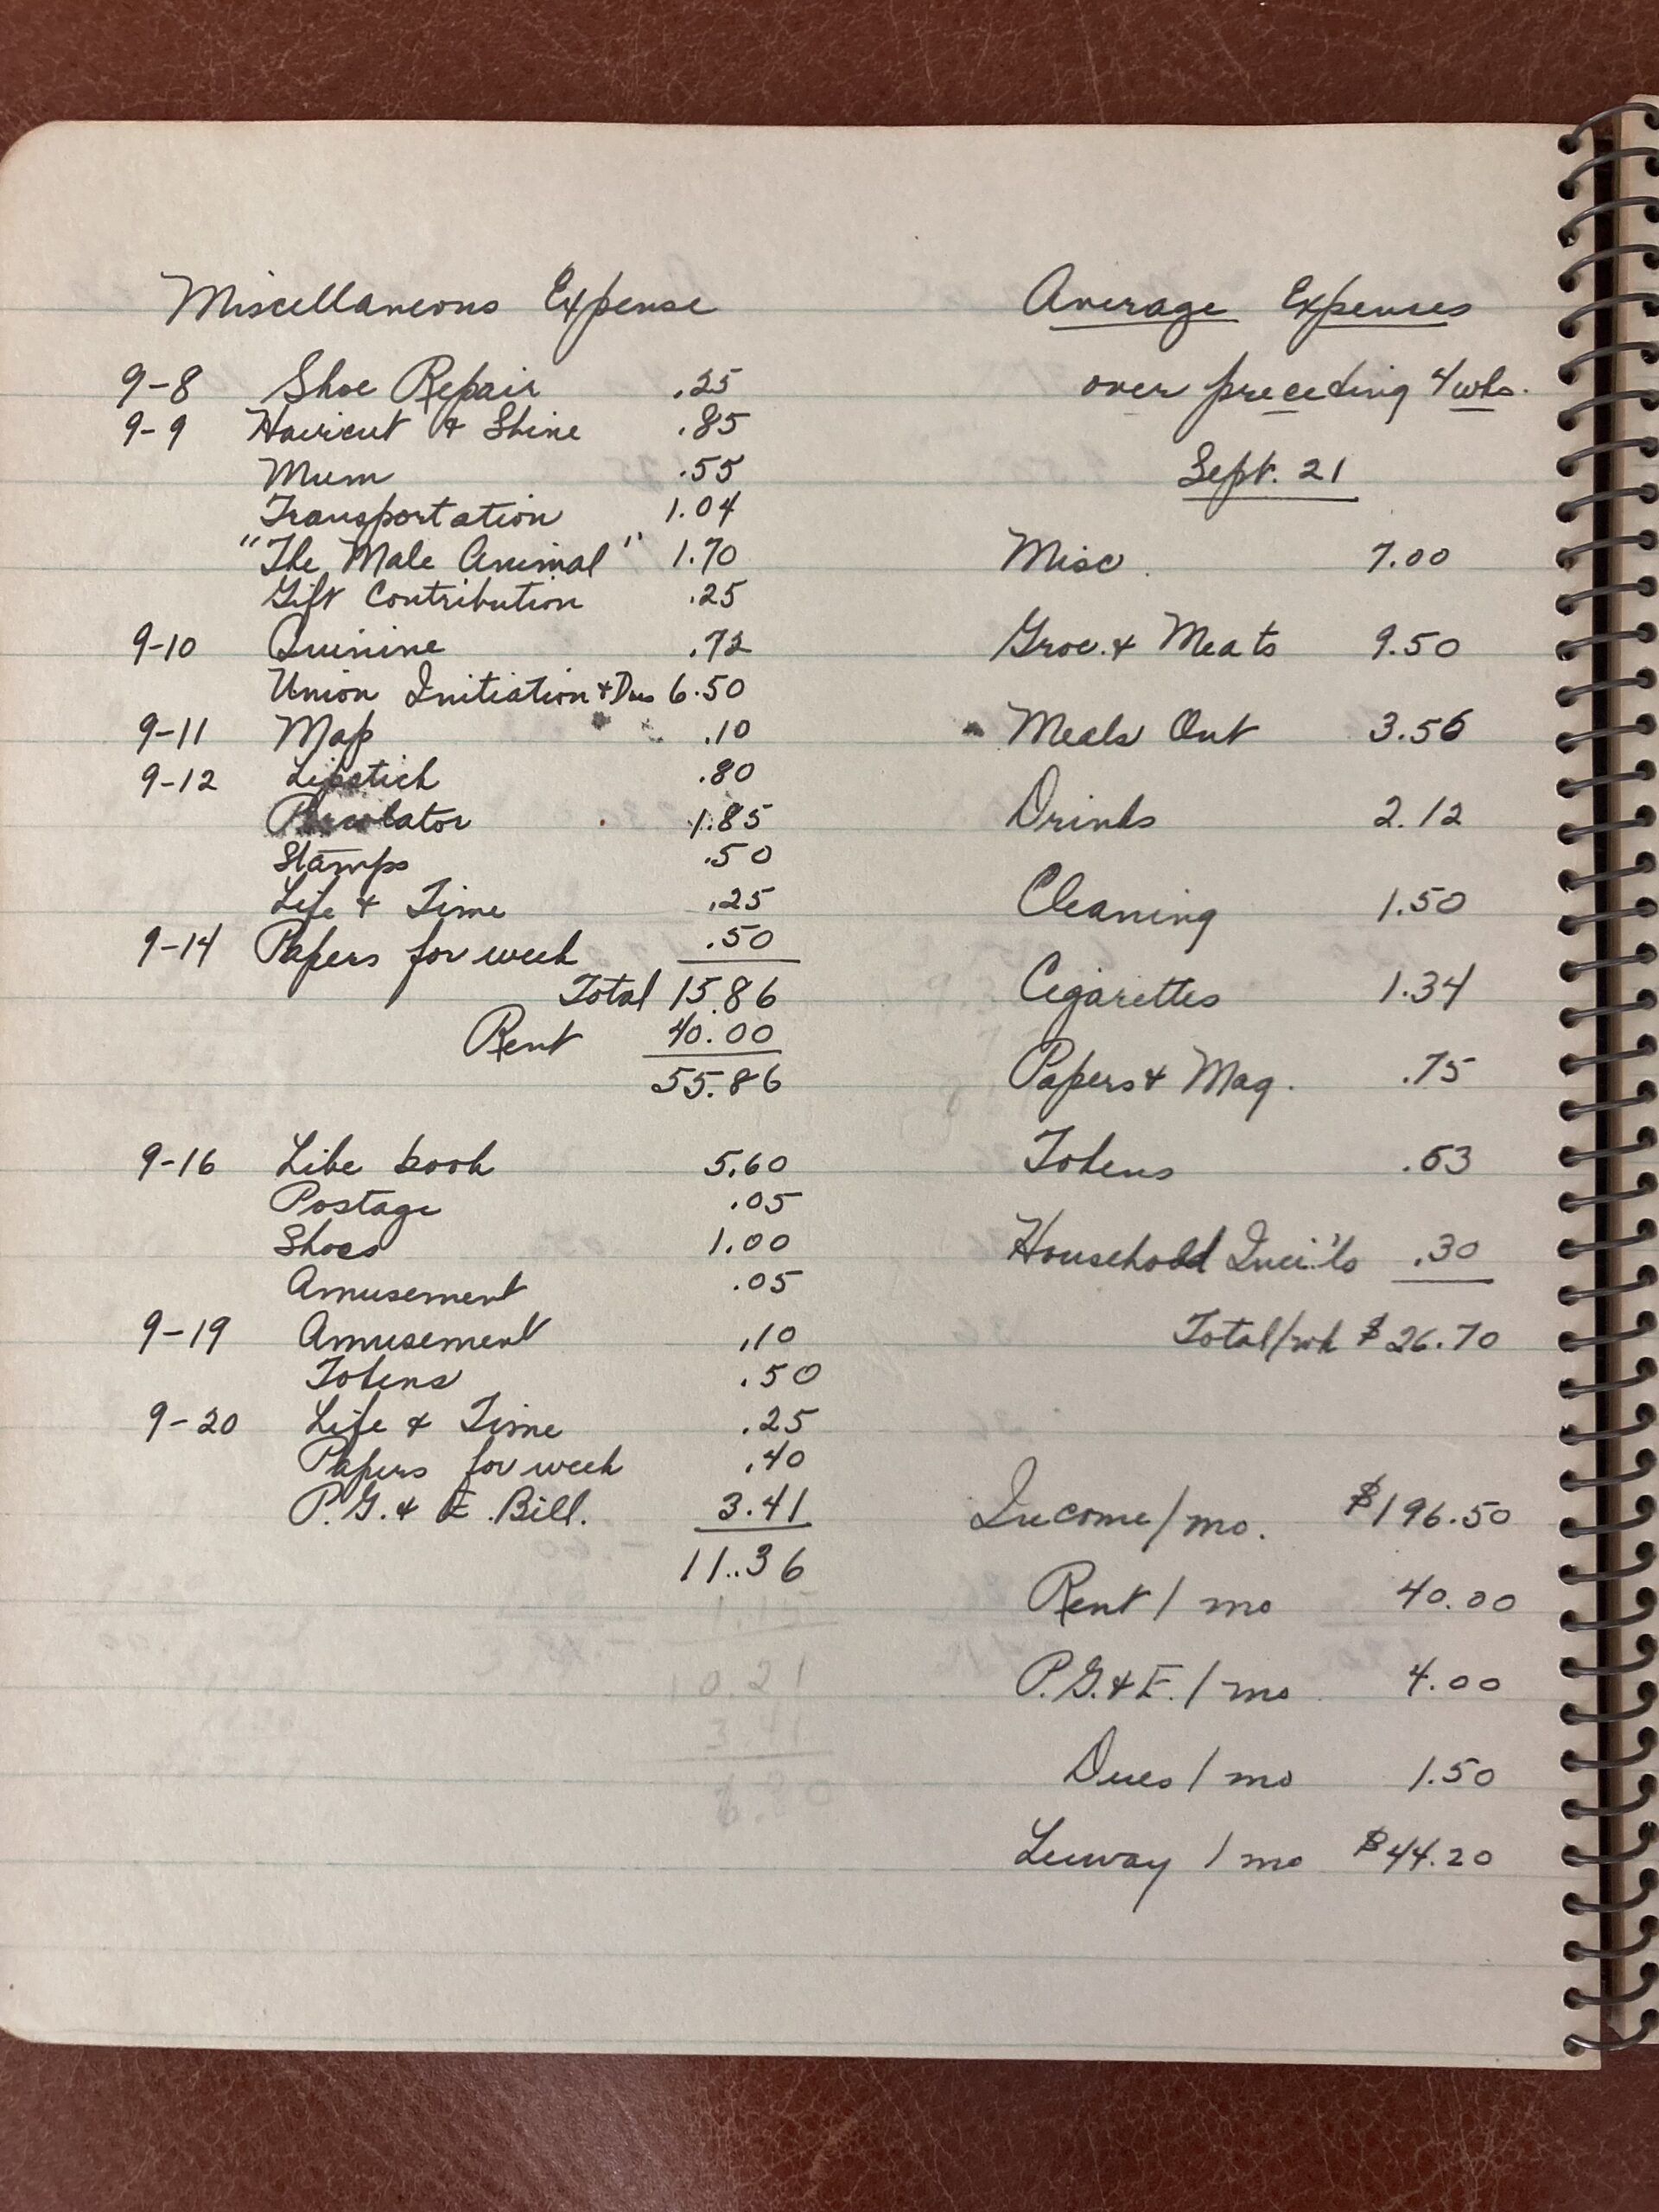 Miscellaneous Expense
9-8 Shoe Repair .25
9-9 Haircut & Shine .85
Mum .55
Transportation 1.04
"The Male Animal" 1.70
Gift Contribution .25
9-10 Quinine .72
Union Initiation & Dues 6.50
9-11 Map .10
9-12 Lipstick .80
Percolator 1.85
Stamps .50
Life & Time .25
9-14 Papers for week .50
Total 15.86
Rent 40.00
55.86
9-16 Libe book 5.60
Postage .05
Shoes 1.00
Amusement .05
9-19 Amusement .10
Tokens .50
9-20 Life & Time .25
Papers for week .40
P.G. & E. Bill. 3.41
11.36
Average Expenses
over preceding 4 wks.
Sept. 21
Misc. 7.00
Groc. & Meats 9.50
Meals Out 3.56
Drinks 2.12
Cleaning 1.50
Cigarettes 1.34
Papers & Mag. .75
Tokens .63
Household Inci'ls .30
Total/wk $26.70
Income/mo. $196.50
Rent/mo 40.00
P.G. & E./mo 4.00
Dues/mo 1.50
Leeway/mo $44.20